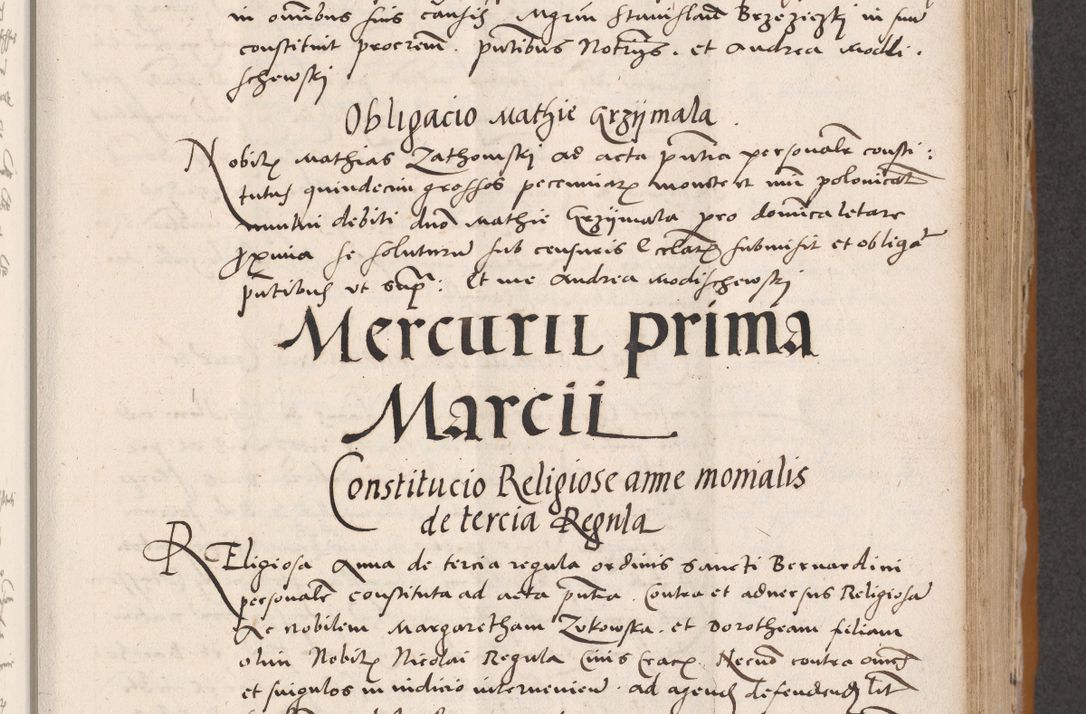 in omnibus suis causis Mgrm Stanislaum Brzeziczki in suum
constituit procrem. putibus Notrijs. et Andrea Modli.
schewski
Obligacio Mathie Grzijmala
Nobilis Mathias Zathowski ad acta pntia personalr consti:
tutus quindecim grossos pecuniarum monete et nūi polonicalis
mutui debiti dno Mathie Grzijmala pro dominica letare
proxima se soluturum sub censuris Ecclesiarum submisit et obligat
pntibus vt supra: Et me Andrea Modischewski
Mercurii prima
Marcii
Constitucio Religiose anne monialis
de tercia Regula
REligiosa Anna de tercia regula ordinis sancti Bernardini
personalr constituta ad acta pntia. Contra et aduersus Religiosam
Ac nobilem Margaretham Zukowska. et Dorotheam filiam
olim Nobilis Nicolai Regula Ciuis Crac. Necnon contra omnes
et singulos in iudicio intervenientes. ad agend defendend lit